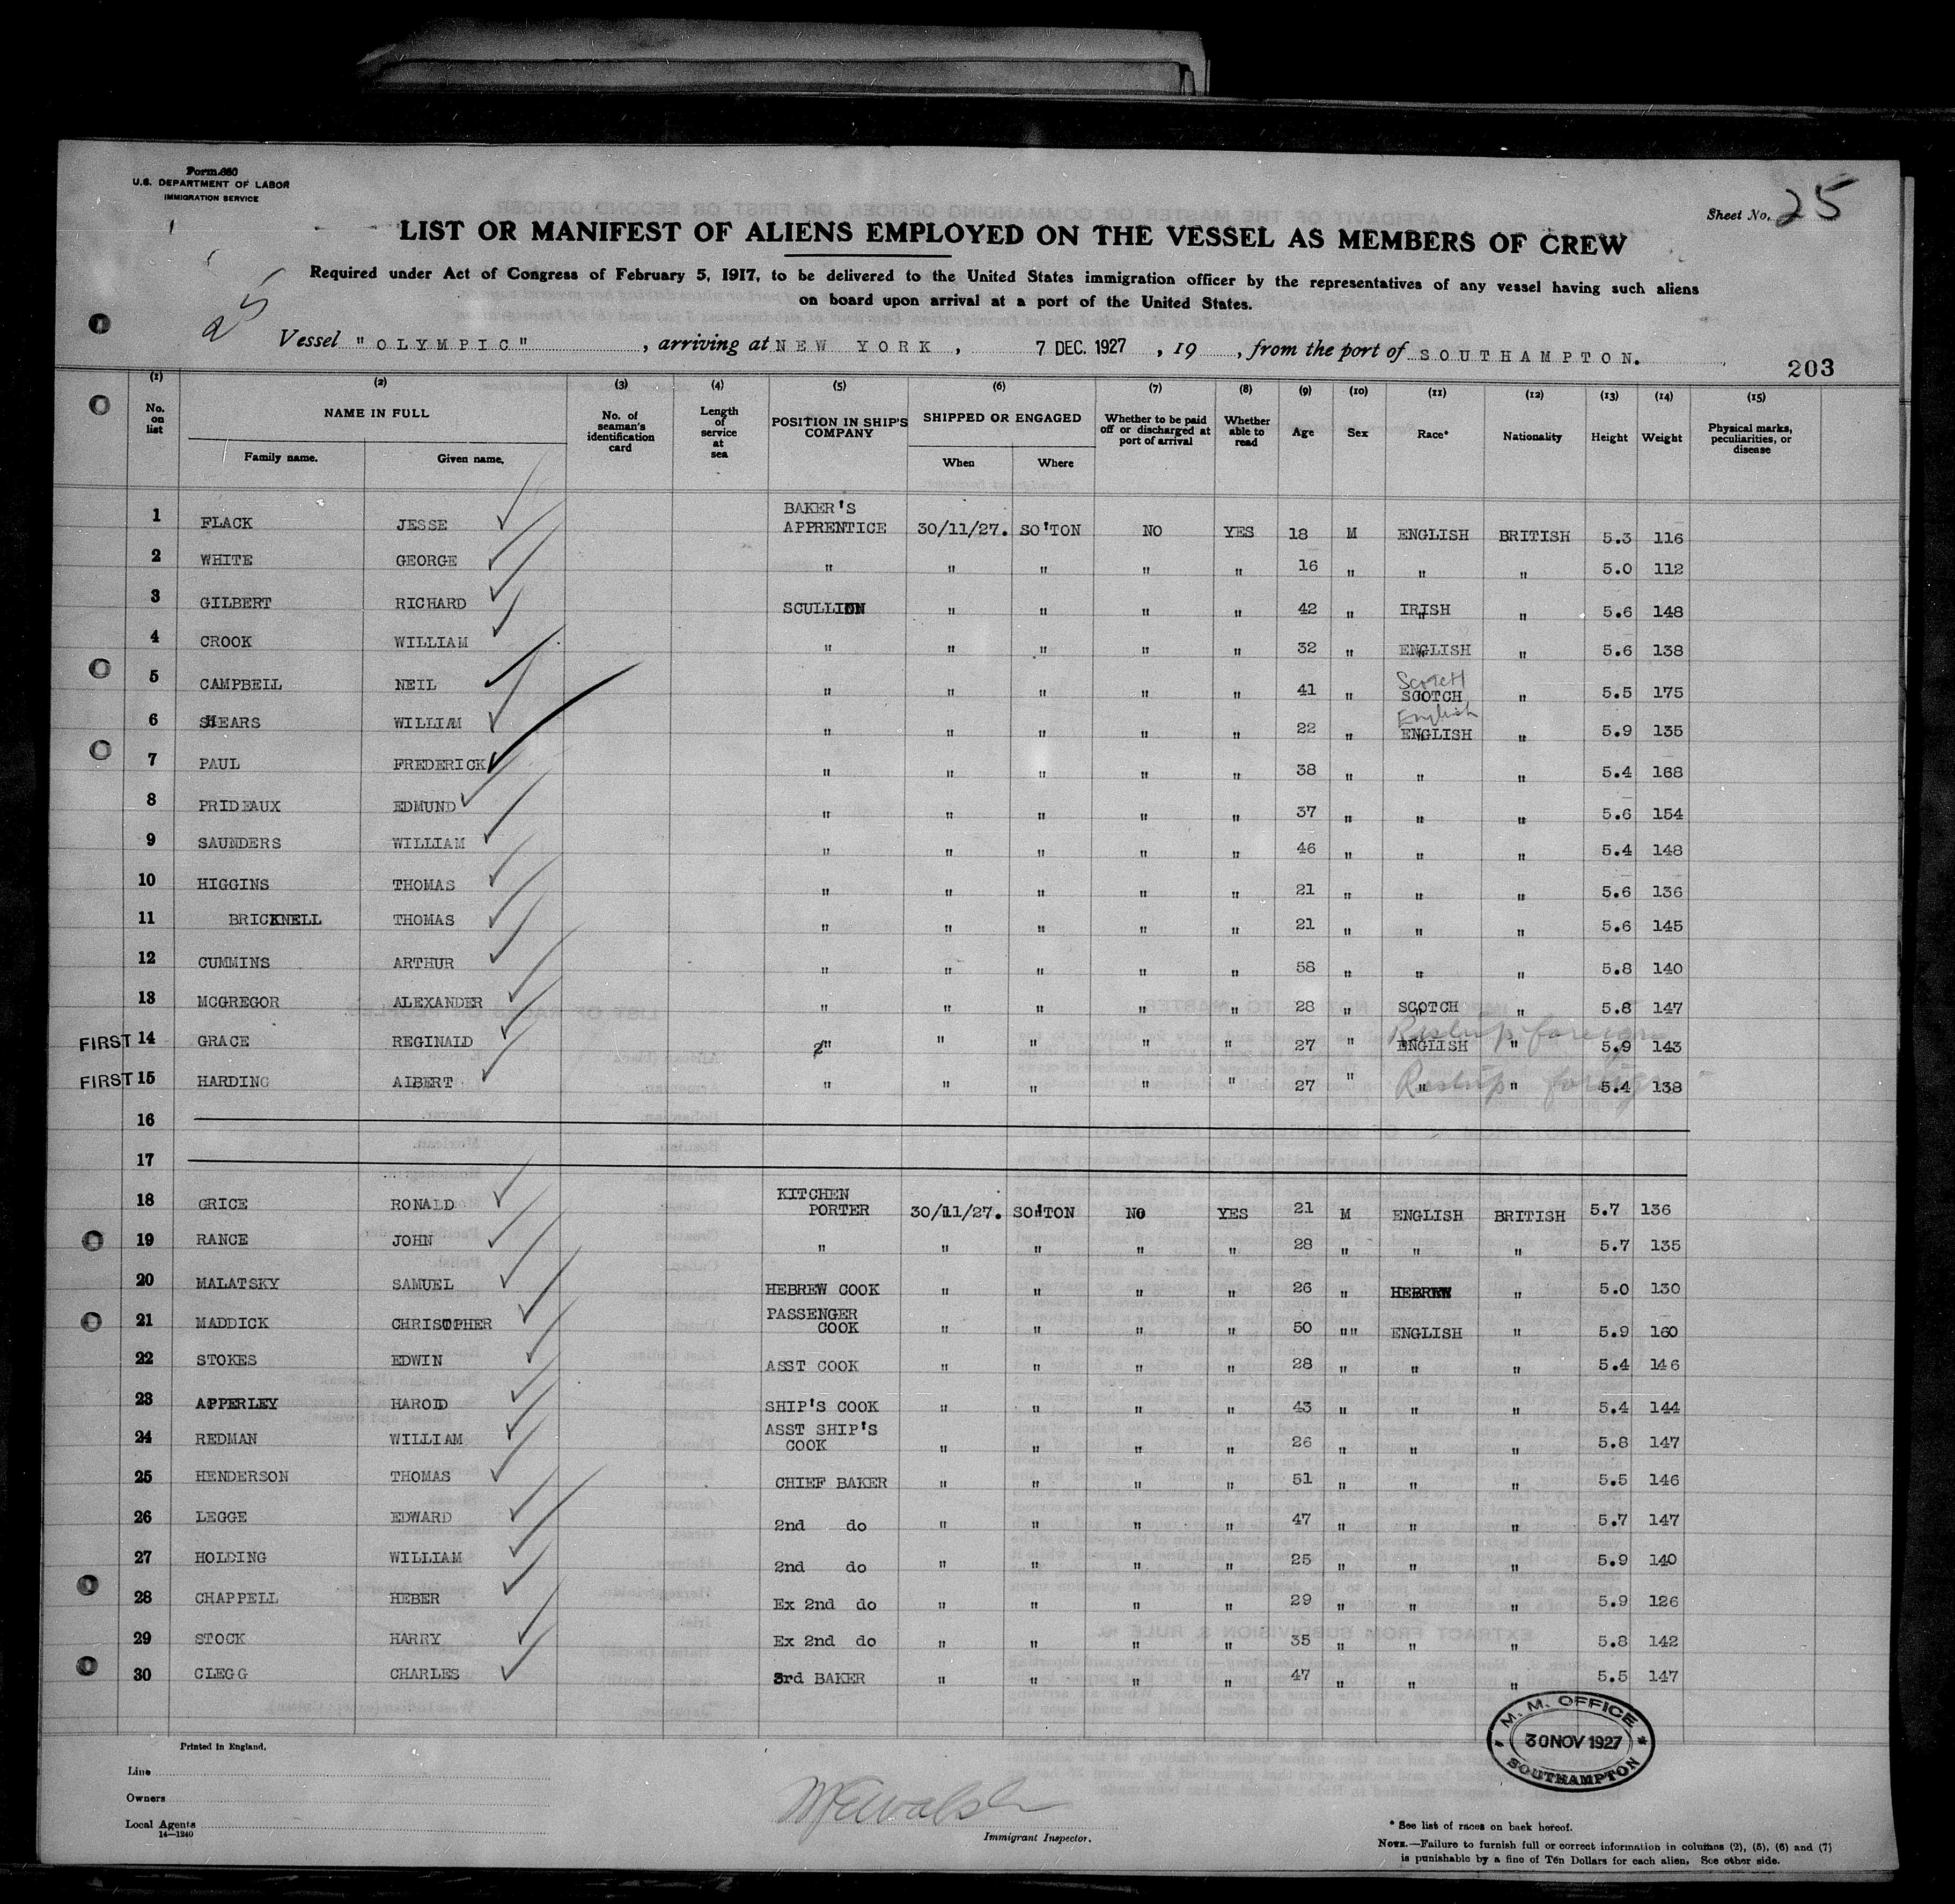 Form 680
U.S. DEPARTMENT OF LABOR
IMMIGRATION SERVICE
Sheet No. 25
LIST OR MANIFEST OF ALIENS EMPLOYED ON THE VESSEL AS MEMBERS OF CREW
Required under Act of Congress of February 5, 1917, to be delivered to the United States immigration officer by the representatives of any vessel having such aliens
on board upon arrival at a port of the United States.
25
Vessel "OLYMPIC", arriving at NEW YORK, 7 DEC. 1927, 19 , from the port of SOUTHAMPTON.
203
(1) (2) (3) (4) (5) (6) (7) (8) (9) (10) (11) (12) (13) (14) (15)
No. on list NAME IN FULL Family name. Given name. No. of seaman's identification card Length of service at sea POSITION IN SHIP'S COMPANY SHIPPED OR ENGAGED When Where Whether to be paid off or discharged at port of arrival Whether able to read Age Sex Race* Nationality Height Weight Physical marks, peculiarities, or disease
1 FLACK JESSE BAKER'S APPRENTICE 30/11/27. SO'TON NO YES 18 M ENGLISH BRITISH 5.3 116
2 WHITE GEORGE " " " " " 16 " " " 5.0 112
3 GILBERT RICHARD SCULLION " " " " 42 " IRISH " 5.6 148
4 CROOK WILLIAM " " " " " 32 " ENGLISH " 5.6 138
5 CAMPBELL NEIL " " " " " 41 " Scotch SCOTCH " 5.5 175
6 SHEARS WILLIAM " " " " " 22 " English ENGLISH " 5.9 135
7 PAUL FREDERICK " " " " " 38 " " " 5.4 168
8 PRIDEAUX EDMUND " " " " " 37 " " " 5.6 154
9 SAUNDERS WILLIAM " " " " " 46 " " " 5.4 148
10 HIGGINS THOMAS " " " " " 21 " " " 5.6 136
11 BRICKNELL THOMAS " " " " " 21 " " " 5.6 145
12 CUMMINS ARTHUR " " " " " 58 " " " 5.8 140
13 MCGREGOR ALEXANDER " " " " " 28 " SCOTCH " 5.8 147
FIRST 14 GRACE REGINALD " " " " " 27 " ENGLISH " 5.9 143 Reship foreign
FIRST 15 HARDING ALBERT " " " " " 27 " " " 5.4 138 Reship foreign
16
17
18 GRICE RONALD KITCHEN PORTER 30/11/27. SO'TON NO YES 21 M ENGLISH BRITISH 5.7 136
19 RANCE JOHN " " " " " 28 " " " 5.7 135
20 MALATSKY SAMUEL HEBREW COOK " " " " 26 " HEBREW " 5.0 130
21 MADDICK CHRISTOPHER PASSENGER COOK " " " " 50 "" ENGLISH " 5.9 160
22 STOKES EDWIN ASST COOK " " " " 28 " " " 5.4 146
23 APPERLEY HAROLD SHIP'S COOK " " " " 43 " " " 5.4 144
24 REDMAN WILLIAM ASST SHIP'S COOK " " " " 26 " " " 5.8 147
25 HENDERSON THOMAS CHIEF BAKER " " " " 51 " " " 5.5 146
26 LEGGE EDWARD 2nd do " " " " 47 " " " 5.7 147
27 HOLDING WILLIAM 2nd do " " " " 25 " " " 5.9 140
28 CHAPPELL HEBER Ex 2nd do " " " " 29 " " " 5.9 126
29 STOCK HARRY Ex 2nd do " " " " 35 " " " 5.8 142
30 CLEGG CHARLES 3rd BAKER " " " " 47 " " " 5.5 147
M. M. OFFICE
30 NOV 1927
SOUTHAMPTON
Printed in England.
Line
Owners
Local Agents
14—1240
Immigrant Inspector.
* See list of races on back hereof.
NOTE.—Failure to furnish full or correct information in columns (2), (5), (6) and (7)
is punishable by a fine of Ten Dollars for each alien. See other side.